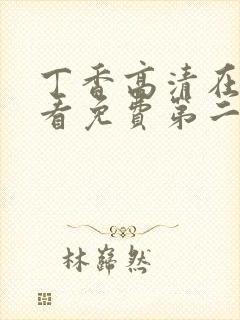 丁香高清在
看免费第二
林巍然